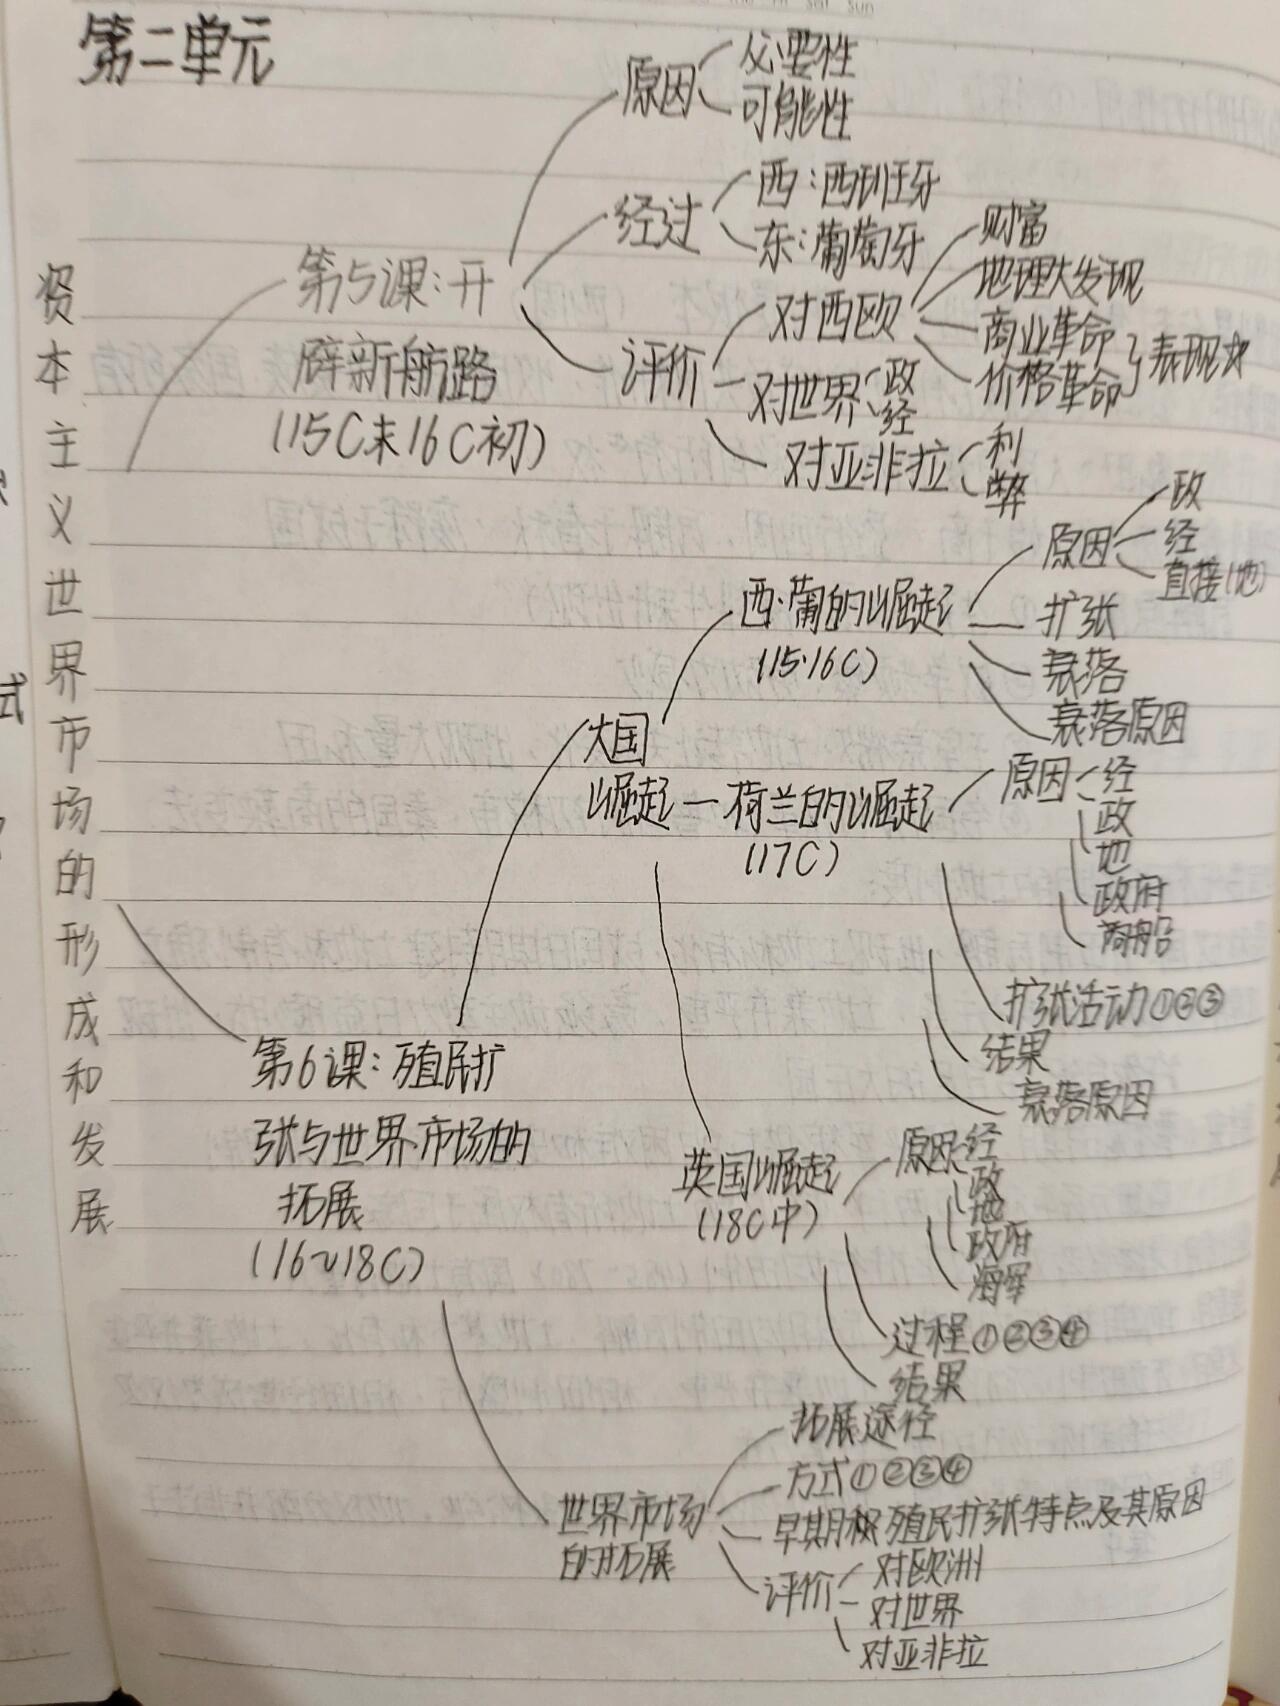 第二单元
资本主义世界市场的形成和发展
第5课:开
辟新航路
(15C末16C初)
原因
必要性
可能性
经过
西:西班牙
东:葡萄牙
评价
对西欧
财富
地理大发现
商业革命
价格革命
对世界
政
经
对亚非拉
利
弊
第6课:殖民扩
张与世界市场的
拓展
(16~18C)
大国
崛起
西·葡的崛起
(15·16C)
原因
政
经
直接(地)
扩张
衰落
衰落原因
荷兰的崛起
(17C)
原因
经
政
地
政府
商船
扩张活动①②③
结果
衰落原因
英国崛起
(18C中)
原因
经
政
地
政府
海军
过程①②③④
结果
世界市场
的拓展
拓展途径
方式①②③④
早期殖民扩张特点及其原因
评价
对欧洲
对世界
对亚非拉